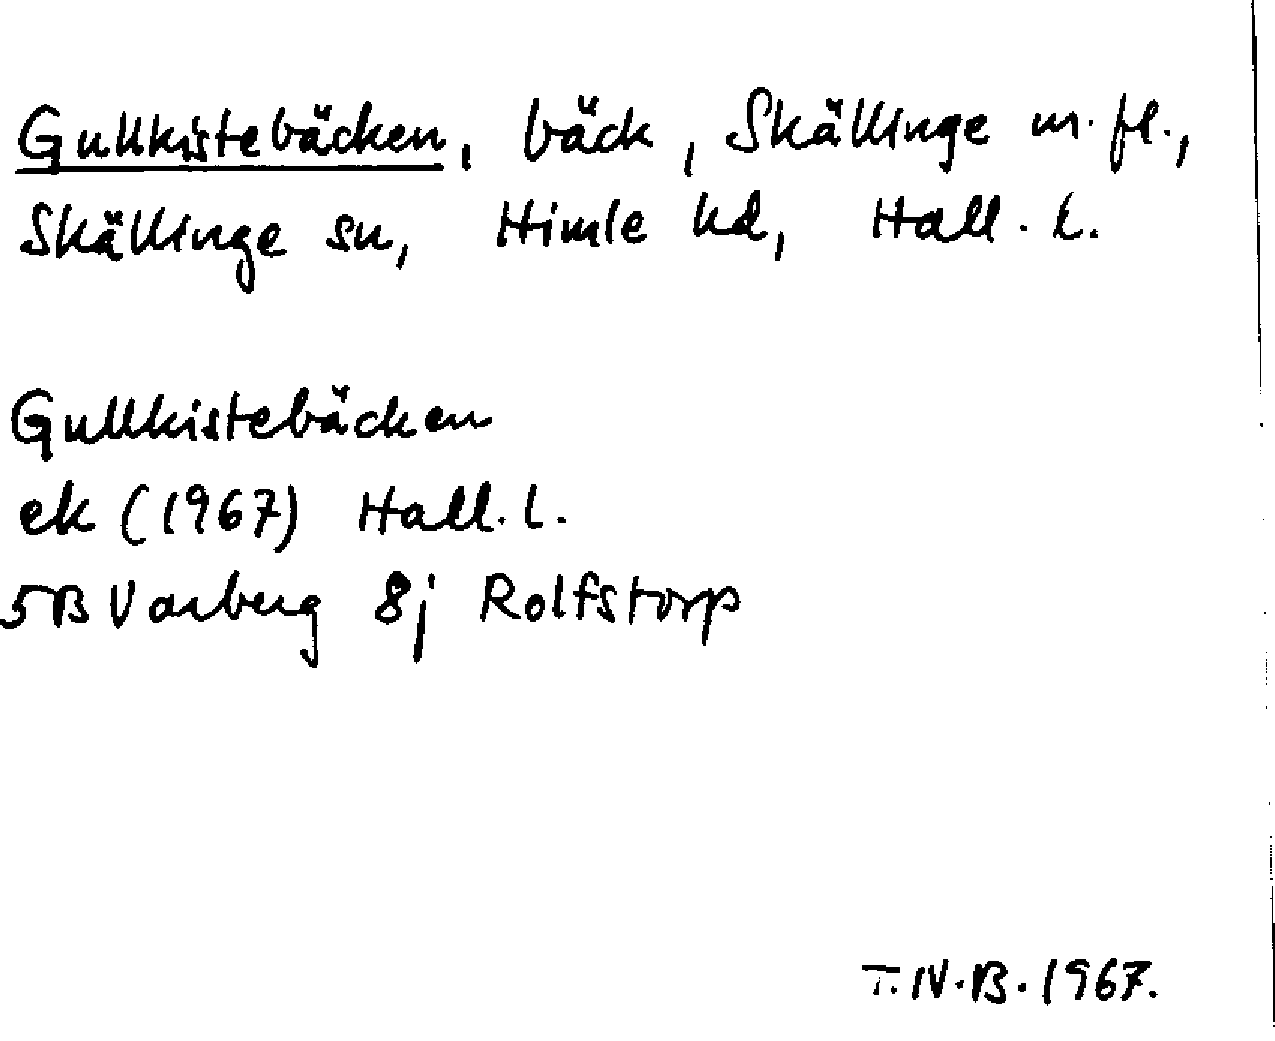 Gullkistebäcken, bäck, Skällinge m. fl.,
Skällinge sn, Himle hd, Hall. l.
Gullkistebäcken
ek (1967) Hall. l.
5B Varberg 8j Rolfstorp
T. N. B. 1967.